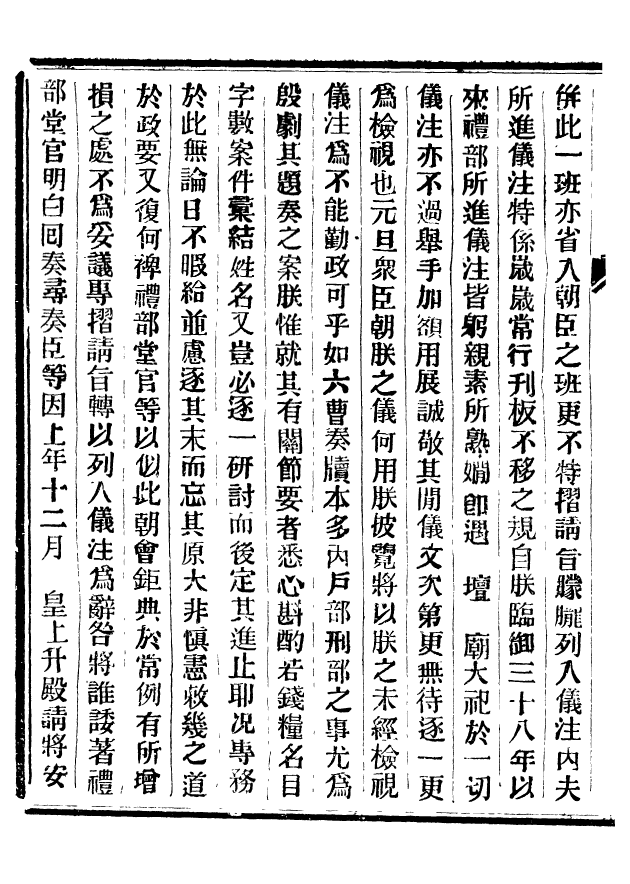 併此一班亦省入朝臣之班更不特摺請旨矇朧列入儀注內夫
所進儀注特係歲歲常行刊板不移之規自朕臨御三十八年以
來禮部所進儀注皆躬親素所熟嫺卽遇　壇　廟大祀於一切
儀注亦不過舉手加額用展誠敬其間儀文次第更無待逐一更
爲檢視也元旦衆臣朝朕之儀何用朕披覽將以朕之未經檢視
儀注爲不能勤政可乎如六曹奏牘本多內戶部刑部之事尤爲
殷劇其題奏之案朕惟就其有關節要者悉心斟酌若錢糧名目
字數案件彙結姓名又豈必逐一研討而後定其進止耶况專務
於此無論日不暇給並慮逐其末而忘其原大非愼憲敕幾之道
於政要又復何裨禮部堂官等以似此朝會鉅典於常例有所增
損之處不爲妥議專摺請旨轉以列入儀注爲辭咎將誰諉著禮
部堂官明白回奏尋奏臣等因上年十二月　皇上升殿請將安